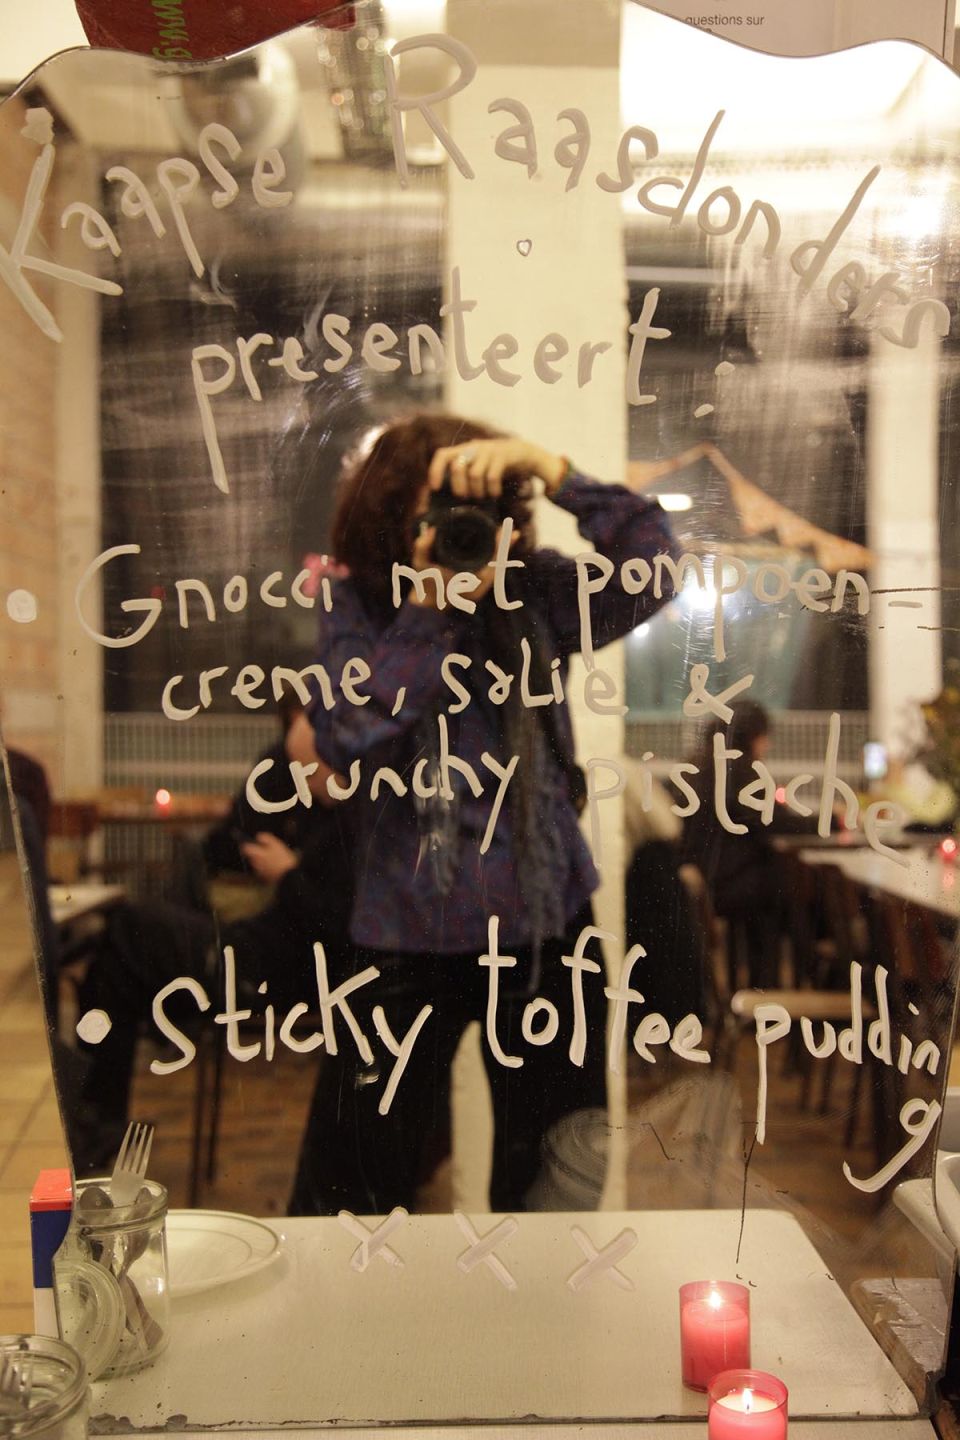 questions sur
Kaapse Raasdonders
presenteert:
• Gnocci met pompoen-
creme, salie &
crunchy pistache
• Sticky toffee puddin
g
x x x